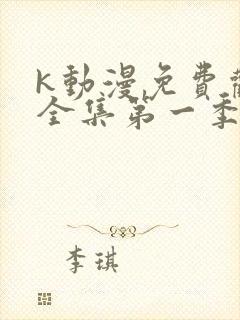 K動漫免費
全集第一季
李琪